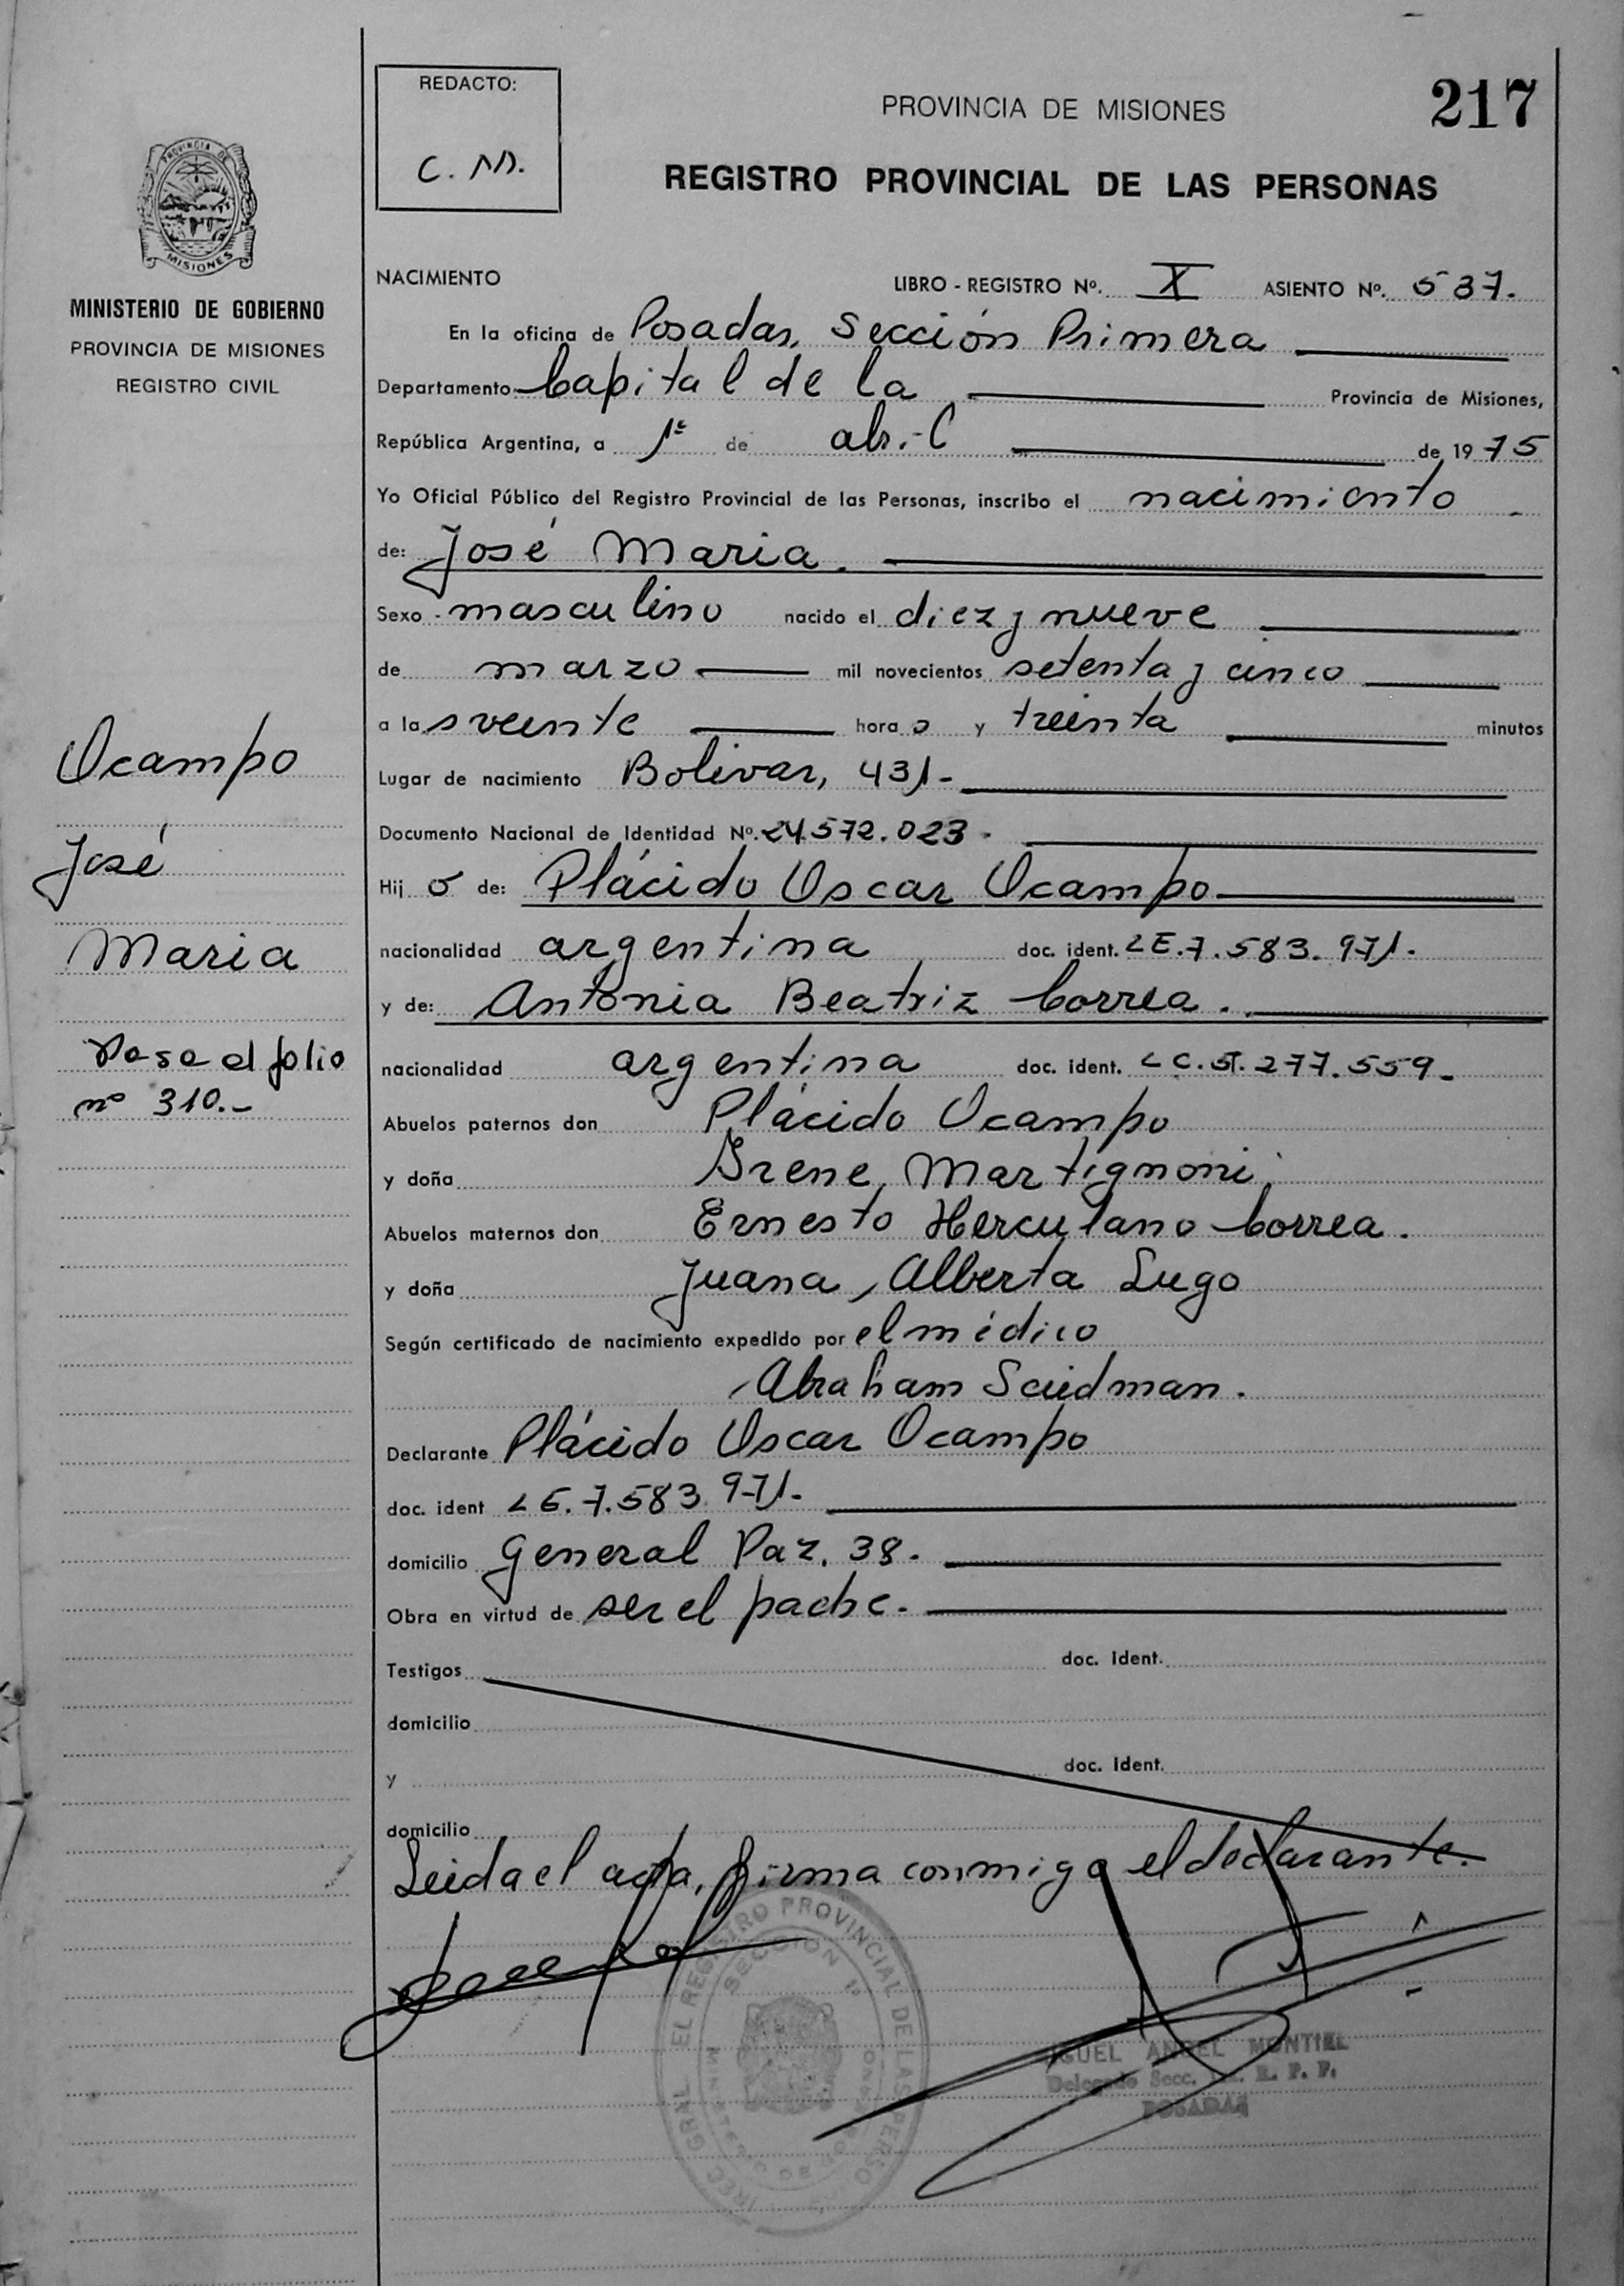 217
REDACTO:
C. M.
PROVINCIA DE MISIONES
REGISTRO PROVINCIAL DE LAS PERSONAS
PROVINCIA DE
MISIONES
MINISTERIO DE GOBIERNO
PROVINCIA DE MISIONES
REGISTRO CIVIL
NACIMIENTO LIBRO - REGISTRO Nº. X ASIENTO Nº. 537.
En la oficina de Posadas, Sección Primera
Departamento Capital de la Provincia de Misiones,
República Argentina, a 1º de abril de 1975
Yo Oficial Público del Registro Provincial de las Personas, inscribo el nacimiento
de: José Maria.
Sexo masculino nacido el diez y nueve
de marzo mil novecientos setenta y cinco
a las veinte horas y treinta minutos
Lugar de nacimiento Bolivar, 431-
Documento Nacional de Identidad Nº. 24.572.023.
Hijo de: Plácido Oscar Ocampo
nacionalidad argentina doc. ident. LE.7.583.971.
y de: Antonia Beatriz Correa.
nacionalidad argentina doc. ident. LC.5.277.559.
Abuelos paternos don Plácido Ocampo
y doña Irene Martignoni
Abuelos maternos don Ernesto Herculano Correa.
y doña Juana Alberta Lugo
Según certificado de nacimiento expedido por el médico
Abraham Seidman.
Declarante Plácido Oscar Ocampo
doc. ident LE.7.583.971.
domicilio General Paz, 38.
Obra en virtud de ser el padre.
Testigos doc. ident.
domicilio
y doc. ident.
domicilio
Leida el acta, firma conmigo el declarante.
Ocampo
José
Maria
Pasa al folio
nº 310.-
REGISTRO PROVINCIAL DE LAS PERSO
SECCION 1º
MIGUEL ANGEL MONTIEL
Delegado Secc.
POSADAS